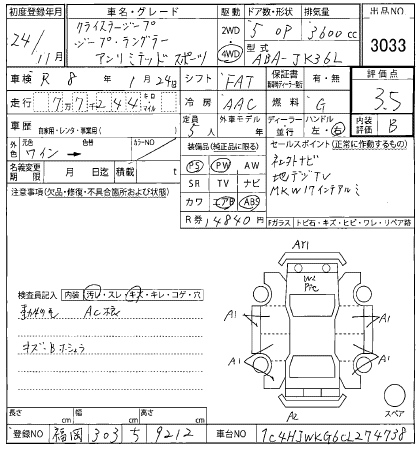 初度登録年月 車名・グレード 駆動 ドア数・形状 排気量 出品NO
24/11月 クライスラージープ ジープ・ラングラー アンリミテッド スポーツ 2WD 4WD 5 OP 3600cc 3033
型式 ABA-JK36L
車検 R 8年 1月 24日 シフト FAT 保証書 有・無 評価点
走行 7万7千244 キロ マイル 冷房 AAC 燃料 G 3.5
車歴 自家用・レンタ・事業用( ) 定員 5人 外車モデル 年 ディーラー 並行 ハンドル 左・右 内装評価 B
外色 元色 ワイン 色替 カラーNO
装備品(純正品に限る) セールスポイント(正常に作動するもの)
名義変更期限 月 日迄 積載 t
PS PW AW
SR TV ナビ
カワ エアB ABS
R券 14840円
地デジTV
MKW 17インチアルミ
注意事項(欠品・修復・不具合箇所および状態)
Fガラス トビ石・キズ・ヒビ・ワレ・リペア跡
検査員記入 内装 汚レ・スレ・キズ・キレ・コゲ・穴
キズ・Bホシュウ
AY1
A1 A1
A1 A1
A1 A1
A2
スペア
長さ cm 幅 cm 高さ cm
登録NO 福岡 303 ち 9212 車台NO 1C4HJWKG6CL274738